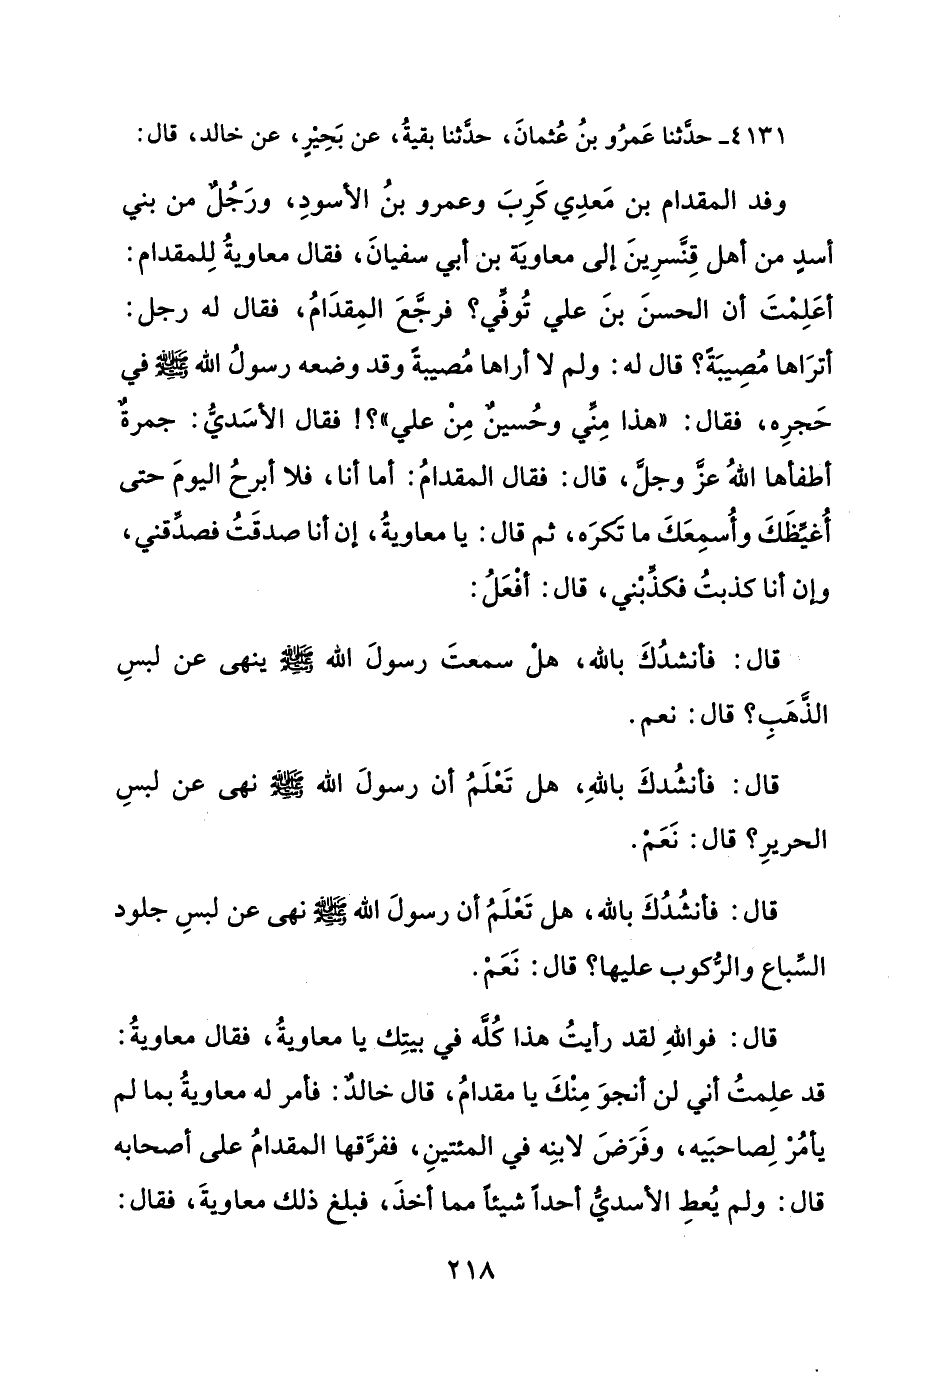 ٤١٣١ـ حدَّثنا عَمرُو بنُ عُثمانَ، حدَّثنا بقيةُ، عن بَحِيْرٍ، عن خالد، قال:
وفد المقدام بن مَعدِي كَرِبَ وعمرو بنُ الأسودِ، ورَجُلٌ من بني
أسدٍ من أهل قِنَّسرِينَ إلى معاويَة بن أبي سفيانَ، فقال معاويةُ لِلمقدام:
أعَلِمْتَ أن الحسنَ بنَ علي تُوفِّي؟ فرجَّعَ المِقدَامُ، فقال له رجل:
أترَاها مُصِيبَةً؟ قال له: ولم لا أراها مُصيبةً وقد وضعه رسولُ الله ﷺ في
حَجرِه، فقال: «هذا مِنِّي وحُسينٌ مِنْ علي»؟! فقال الأسَديُّ: جمرةٌ
أطفأها اللهُ عزَّ وجلَّ، قال: فقال المقدامُ: أما أنا، فلا أبرحُ اليومَ حتى
أُغيِّظَكَ وأُسمِعَكَ ما تَكرَه، ثم قال: يا معاويةُ، إن أنا صدقَتُ فصدِّقني،
وإن أنا كذبتُ فكذِّبْني، قال: أفْعَلُ:
قال: فأنشدُكَ بالله، هلْ سمعتَ رسولَ الله ﷺ ينهى عن لبسِ
الذَّهَبِ؟ قال: نعم.
قال: فأنشُدكَ باللهِ، هل تَعْلَمُ أن رسولَ الله ﷺ نهى عن لبسِ
الحريرِ؟ قال: نَعَمْ.
قال: فأنشُدُكَ بالله، هل تَعْلَمُ أن رسولَ الله ﷺ نهى عن لبسِ جلود
السِّباع والرُّكوب عليها؟ قال: نَعَمْ.
قال: فواللهِ لقد رأيتُ هذا كُلَّه في بيتِك يا معاويةُ، فقال معاويةُ:
قد علِمتُ أني لن أنجوَ مِنْكَ يا مقدامُ، قال خالدٌ: فأمر له معاويةُ بما لم
يأمُرْ لِصاحبَيه، وفَرَضَ لابنِه في المئتينِ، ففرَّقها المقدامُ على أصحابه
قال: ولم يُعطِ الأسديُّ أحداً شيئاً مما أخذَ، فبلغ ذلك معاويةَ، فقال:
٢١٨